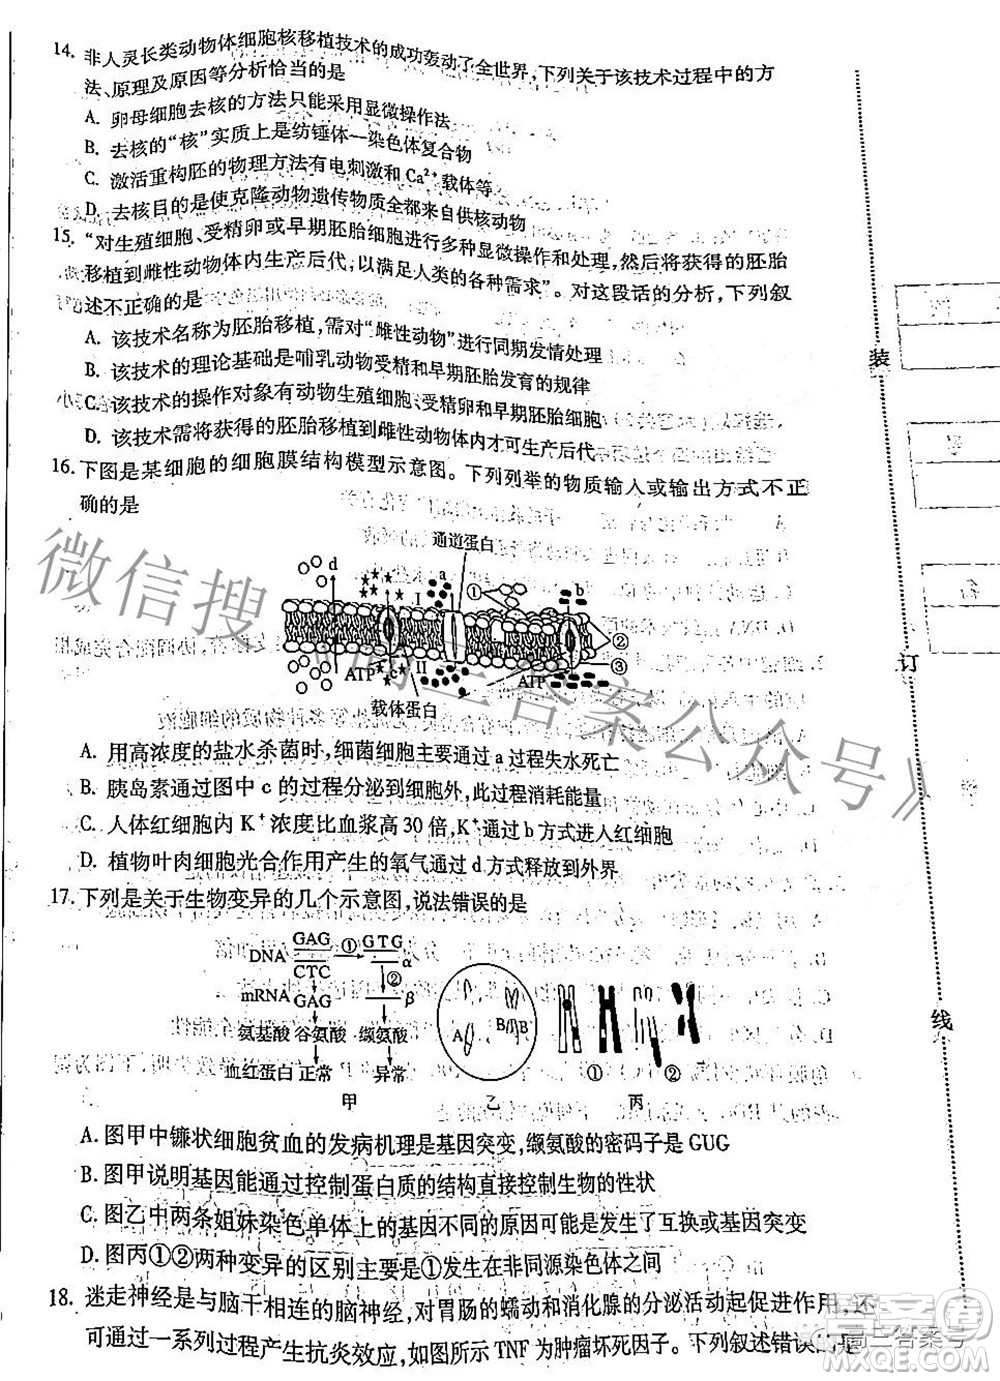 14. 非人灵长类动物体细胞核移植技术的成功轰动了全世界,下列关于该技术过程中的方
法、原理及原因等分析恰当的是
A. 卵母细胞去核的方法只能采用显微操作法
B. 去核的“核”实质上是纺锤体—染色体复合物
C. 激活重构胚的物理方法有电刺激和Ca²⁺载体等
D. 去核目的是使克隆动物遗传物质全部来自供核动物
15. “对生殖细胞、受精卵或早期胚胎细胞进行多种显微操作和处理,然后将获得的胚胎
移植到雌性动物体内生产后代,以满足人类的各种需求”。对这段话的分析,下列叙
述不正确的是
A. 该技术名称为胚胎移植,需对“雌性动物”进行同期发情处理
B. 该技术的理论基础是哺乳动物受精和早期胚胎发育的规律
C. 该技术的操作对象有动物生殖细胞、受精卵和早期胚胎细胞
D. 该技术需将获得的胚胎移植到雌性动物体内才可生产后代
16. 下图是某细胞的细胞膜结构模型示意图。下列列举的物质输入或输出方式不正
确的是
通道蛋白
d
a
I
①
b
②
③
II
c
ATP
ATP
载体蛋白
A. 用高浓度的盐水杀菌时,细菌细胞主要通过a过程失水死亡
B. 胰岛素通过图中 c 的过程分泌到细胞外,此过程消耗能量
C. 人体红细胞内 K⁺浓度比血浆高 30 倍,K⁺通过 b 方式进入红细胞
D. 植物叶肉细胞光合作用产生的氧气通过 d 方式释放到外界
17. 下列是关于生物变异的几个示意图,说法错误的是
DNA GAG ① GTG
CTC α
②
mRNA GAG β
氨基酸 谷氨酸 缬氨酸
血红蛋白 正常 异常
甲
A B B
乙
① ②
丙
A. 图甲中镰状细胞贫血的发病机理是基因突变,缬氨酸的密码子是 GUG
B. 图甲说明基因能通过控制蛋白质的结构直接控制生物的性状
C. 图乙中两条姐妹染色单体上的基因不同的原因可能是发生了互换或基因突变
D. 图丙①②两种变异的区别主要是①发生在非同源染色体之间
18. 迷走神经是与脑干相连的脑神经,对胃肠的蠕动和消化腺的分泌活动起促进作用,还
可通过一系列过程产生抗炎效应,如图所示 TNF 为肿瘤坏死因子。下列叙述错误的是
装
订
线
微信搜《高三答案公众号》
答案圈
MXQE.COM
高三答案号